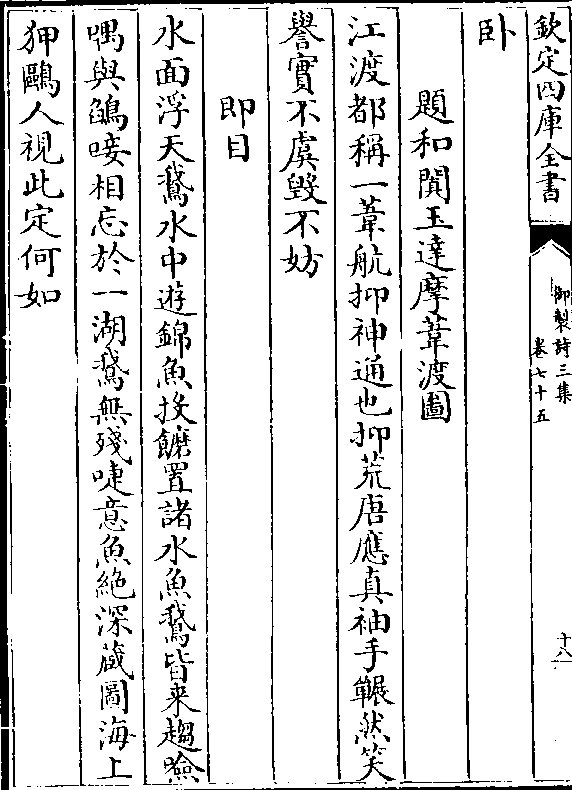 欽定四庫全書
御製詩三集
卷七十五
十八
卧
題和闐玉達摩葦渡圖
江渡都稱一葦航抑神通也抑荒唐應真袖手冁然笑
譽實不虞毁不妨
即目
水面浮天鵝水中遊錦魚投𩞁置諸水魚鵝皆来趨噞
喁與鵮唼相忘於一湖鵝無殘啑意魚絶深藏圖海上
狎鷗人視此定何如